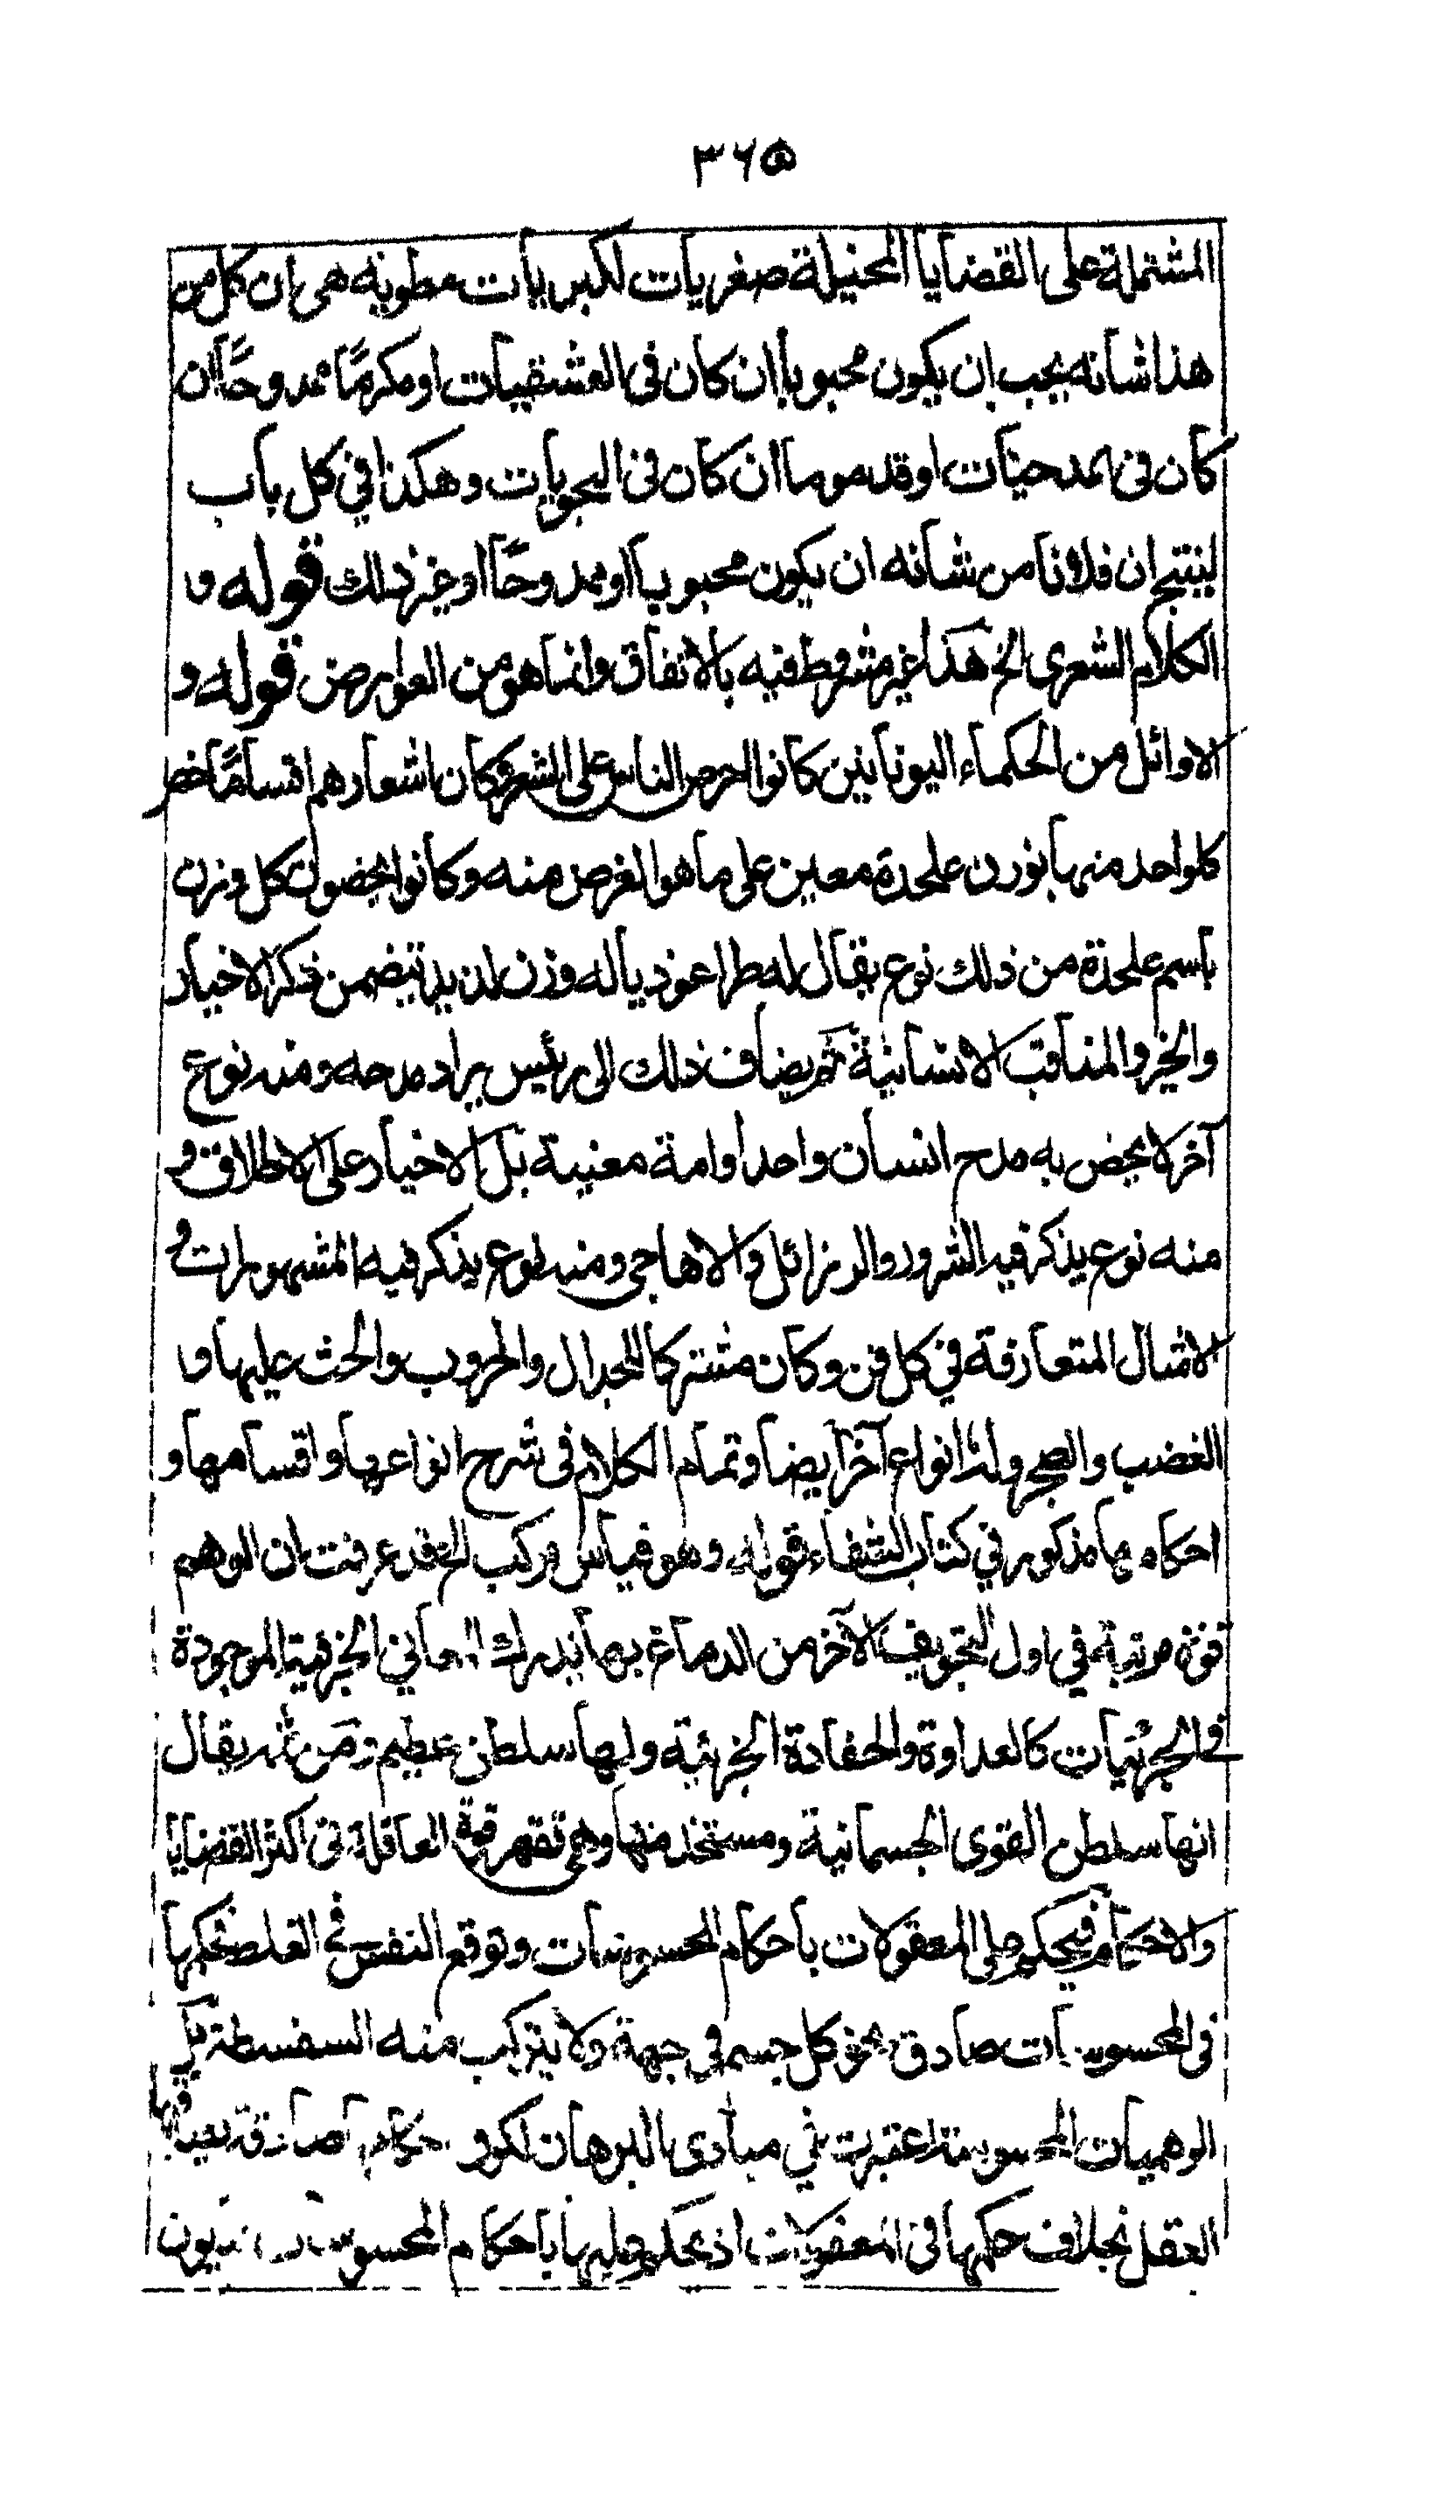 ٣٦٥
المشتملة على القضايا المخيلة صغريات لكبريات مطوية هى ان كل من
هذا شانه يجب ان يكون محبوبا ان كان فى العشقيات او مكرمًا ممدوحًا ان
كان فى مدحيات او قد موما ان كان فى الهجويات وهكذا في كل باب
لينتج ان فلانا من شانه ان يكون محبوبا او ممدوحًا او غير ذلك قوله و
الكلام الشعرى الخ هذا غير مشروط فيه بالاتفاق وانما هو من العوارض قوله و
الاوائل من الحكماء اليونانيين كانوا احرص الناس على الشعر وكان اشعارهم اقسامًا خص
كلواحد منها بوزن علحدة معين على ما هو الغرض منه وكانوا يخصون كل وزن
باسم علحدة من ذلك نوع يقال له طراغوديا له وزن لذيذ يتضمن ذكر الاخيار
والخير والمناقب الانسانية ثم يضاف ذلك الى رئيس يراد مدحه ومنه نوع
آخر لا يخص به مدح انسان واحد او امة معينة بل الاخيار على الاطلاق و
منه نوع يذكر فيه الشرور والرزائل والاهاجى ومنه نوع يذكر فيه المشهورات و
الامثال المتعارفة في كل فن وكان مشتركا للجدال والحروب والحث عليها و
الغضب والضجر وله انواع آخر ايضا وتمام الكلام فى شرح انواعها واقسامها و
احكامها مذكور في كتاب الشفاء قوله وهو قياس مركب الخ قد عرفت ان الوهم
قوة مرتبة في اول التجويف الآخر من الدماغ بها يدرك المعاني الجزئية الموجودة
فى الجزئيات كالعداوة والحفادة الجزئية ولها سلطن عظيم ومن ثم يقال
انها سلطن القوى الجسمانية ومستخدمها وهى تقهر قوة العاقلة فى اكثر القضايا
والاحكام فيحكم على المعقولات باحكام المحسوسات وتوقع النفس في الغلط فحكمها
فى المحسوسات صادق نحو كل جسم فى جهة ولا يتركب منه السفسطة بل
الوهميات المحسوسة اعتبرت في مبادى البرهان لكون احكامها صادقة يصدقها
العقل بخلاف حكمها فى المعقولات اذ يحكم عليها باحكام المحسوسات فيكون